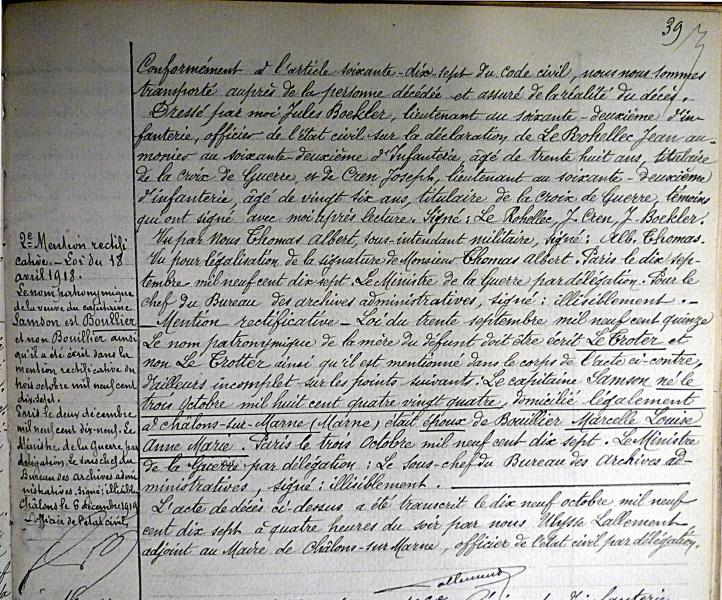 39
Conformément à l'article soixante-dix sept du code civil, nous nous sommes
transporté auprès de la personne décédée et assuré de la réalité du décès.
Dressé par moi Jules Boekler, lieutenant au soixante-deuxième d'in-
fanterie, officier de l'état civil sur la déclaration de Le Rohellec Jean au-
monier au soixante-deuxième d'Infanterie, âgé de trente huit ans, titulaire
de la croix de Guerre, et de Cren Joseph, lieutenant au soixante-deuxième
d'infanterie, âgé de vingt six ans, titulaire de la croix de Guerre, témoins
qui ont signé avec moi après lecture. Signé: Le Rohellec, J. Cren, J. Boekler.
Vu par Nous Thomas Albert, sous-intendant militaire, signé: Alb. Thomas.
Vu pour légalisation de la signature de Monsieur Thomas Albert. Paris le dix sep-
tembre mil neuf cent dix sept. Le Ministre de la Guerre par délégation. Pour le
chef du Bureau des archives administratives, signé: illisiblement. -
Mention rectificative - Loi du trente septembre mil neuf cent quinze
Le nom patronymique de la mère du défunt doit être écrit Le Troter et
non Le Trotter ainsi qu'il est mentionné dans le corps de l'acte ci-contre,
d'ailleurs incomplet sur les points suivants: Le capitaine Samson né le
trois Octobre mil huit cent quatre vingt quatre, domicilié légalement
à châlons-sur-Marne (Marne) était époux de Bouillier Marcelle Louise
Anne Marie. Paris le trois Octobre mil neuf cent dix sept. Le Ministre
de la Guerre par délégation: Le Sous-chef du Bureau des Archives ad-
ministratives, signé: illisiblement.
L'acte de décès ci-dessus a été transcrit le dix neuf octobre mil neuf
cent dix sept à quatre heures du soir par nous Ulysse Lallement
adjoint au Maire de Châlons-sur-Marne, officier de l'état civil par délégation.
Lallement
2e Mention rectifi
cative. - Loi du 18
avril 1918.
Le nom patronymique
de la veuve du capitaine
Samson est Boullier
et non Bouillier ainsi
qu'il a été écrit dans la
mention rectificative du
huit octobre mil neuf cent
dix sept.
Paris le deux décembre
mil neuf cent dix-neuf. Le
Ministre de la Guerre par
délégation, Le sous chef du
Bureau des Archives admi
nistratives. Signé: illisible
Châlons le 6 décembre 1919
L'officier de l'état civil,